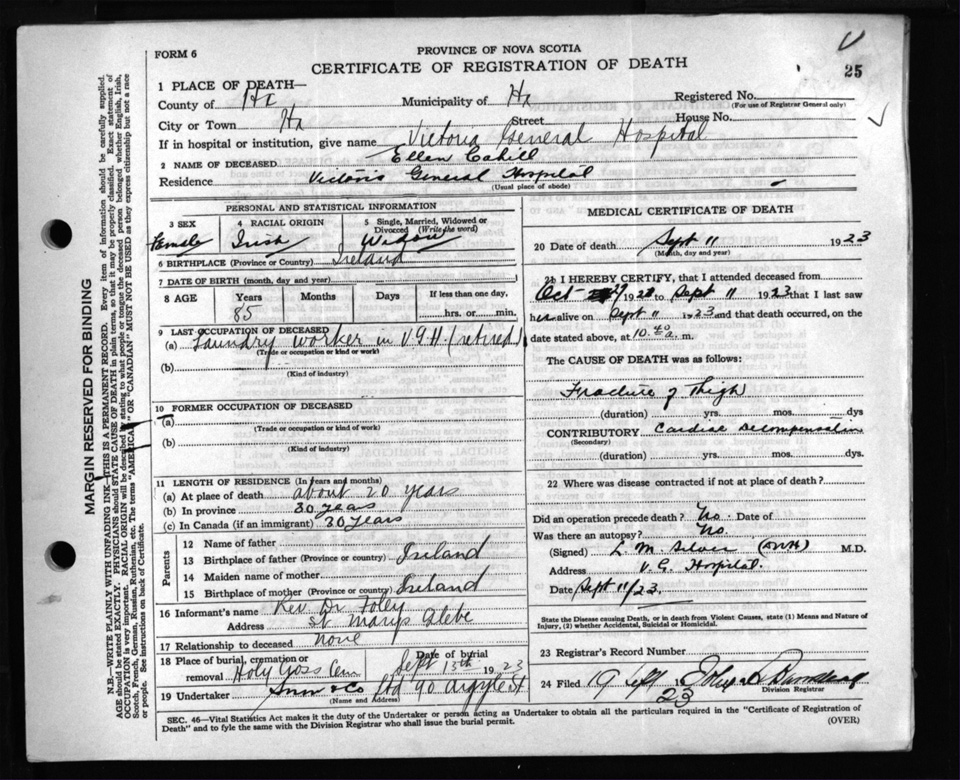 FORM 6
PROVINCE OF NOVA SCOTIA
CERTIFICATE OF REGISTRATION OF DEATH
25
1 PLACE OF DEATH—
County of Hx Municipality of Hx Registered No.
(For use of Registrar General only)
City or Town Hx Street House No.
If in hospital or institution, give name Victoria General Hospital
2 NAME OF DECEASED Ellen Cahill
Residence Victoria General Hospital
(Usual place of abode)
PERSONAL AND STATISTICAL INFORMATION
3 SEX 4 RACIAL ORIGIN 5 Single, Married, Widowed or Divorced (Write the word)
Female Irish Widow
6 BIRTHPLACE (Province or Country) Ireland
7 DATE OF BIRTH (month, day and year)
8 AGE Years Months Days If less than one day,
85 hrs. or min.
9 LAST OCCUPATION OF DECEASED
(a) Laundry worker in V.G.H. (retired)
(Trade or occupation or kind of work)
(b)
(Kind of industry)
10 FORMER OCCUPATION OF DECEASED
(a)
(Trade or occupation or kind of work)
(b)
(Kind of industry)
11 LENGTH OF RESIDENCE (In years and months)
(a) At place of death about 20 years
(b) In province 30 years
(c) In Canada (if an immigrant) 30 years
Parents
12 Name of father
13 Birthplace of father (Province or country) Ireland
14 Maiden name of mother
15 Birthplace of mother (Province or country) Ireland
16 Informant's name Rev. Dr Foley
Address St Marys Glebe
17 Relationship to deceased none
18 Place of burial, cremation or removal Holy Cross Cem Date of burial Sept 13th 1923
19 Undertaker Snow & Co Ltd 90 Argyle St
(Name and Address)
MEDICAL CERTIFICATE OF DEATH
20 Date of death Sept 11 1923
(Month, day and year)
21 I HEREBY CERTIFY, that I attended deceased from
Oct 29 192 to Sept 11 1923 that I last saw
her alive on Sept 11 1923 and that death occurred, on the
date stated above, at 10.40 a. m.
The CAUSE OF DEATH was as follows:
Fracture of Thigh
(duration) yrs. mos. dys
CONTRIBUTORY Cardiac Decompensation
(Secondary)
(duration) yrs. mos. dys.
22 Where was disease contracted if not at place of death?
Did an operation precede death? No. Date of
Was there an autopsy? No.
(Signed) L. M. Silver M.D.
Address V.G. Hospital.
Date Sept 11/23.
State the Disease causing Death, or in death from Violent Causes, state (1) Means and Nature of
Injury, (2) whether Accidental, Suicidal or Homicidal.
23 Registrar's Record Number
24 Filed 19 Sept 1923
Division Registrar
SEC. 46—Vital Statistics Act makes it the duty of the Undertaker or person acting as Undertaker to obtain all the particulars required in the "Certificate of Registration of
Death" and to fyle the same with the Division Registrar who shall issue the burial permit. (OVER)
MARGIN RESERVED FOR BINDING
N.B.—WRITE PLAINLY WITH UNFADING INK—THIS IS A PERMANENT RECORD. Every item of information should be carefully supplied.
AGE should be stated EXACTLY. PHYSICIANS should STATE CAUSE OF DEATH in plain terms, so that it may be properly classified. Exact statement of
OCCUPATION is very important. RACIAL ORIGIN will be described by stating to what people or tongue the deceased person belonged whether English, Irish,
Scotch, French, German, Russian, Ruthenian, etc. The terms "AMERICAN" OR "CANADIAN" MUST NOT BE USED as they express citizenship but not a race
or people. See instructions on back of Certificate.